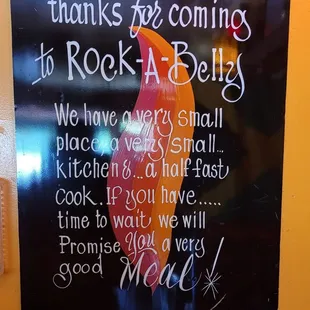 thanks for coming
to Rock-A-Belly
We have a very small
place, a very small...
kitchen &... a half fast
cook. If you have.....
time to wait, we will
Promise You a very
good Meal!